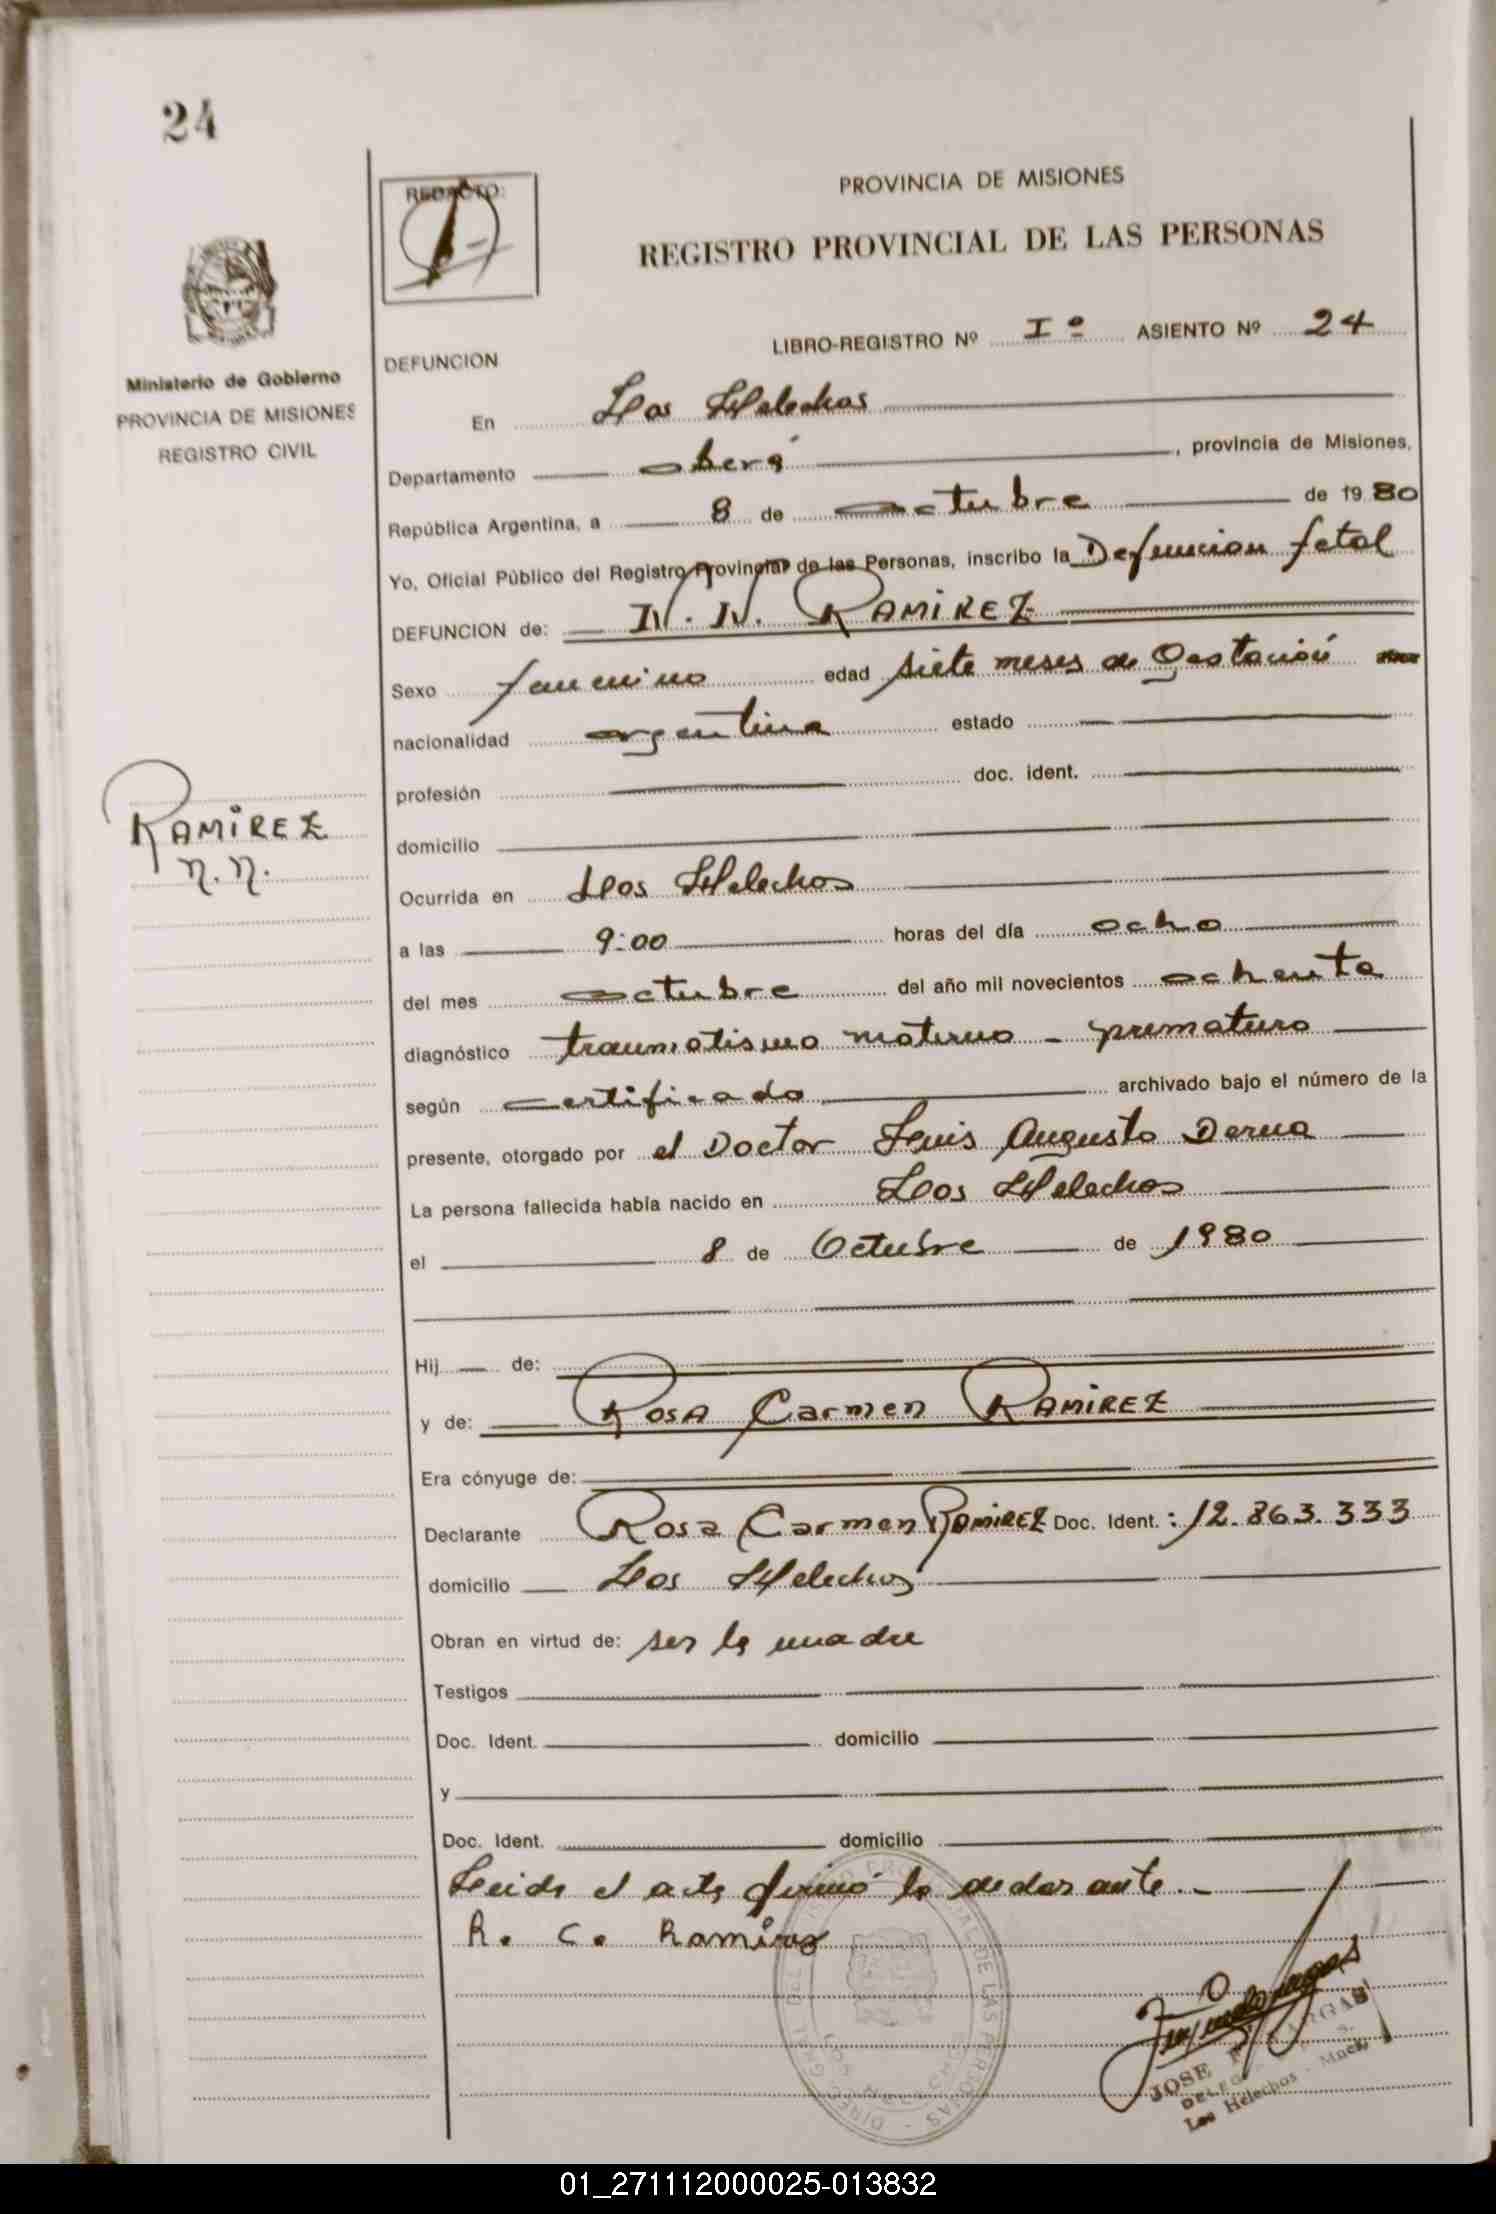 24
REDACTO:
PROVINCIA DE MISIONES
REGISTRO PROVINCIAL DE LAS PERSONAS
LIBRO-REGISTRO Nº Iº ASIENTO Nº 24
DEFUNCION
Ministerio de Gobierno
PROVINCIA DE MISIONES
REGISTRO CIVIL
En Los Helechos
Departamento oberá, provincia de Misiones,
República Argentina, a 8 de octubre de 1980
Yo, Oficial Público del Registro Provincial de las Personas, inscribo la Defuncion fetal
DEFUNCION de: N. N. RAMIREZ
Sexo femenino edad siete meses de gestación
nacionalidad argentina estado
profesión doc. ident.
RAMIREZ
N.N.
domicilio
Ocurrida en Los Helechos
a las 9:00 horas del día ocho
del mes octubre del año mil novecientos ochenta
diagnóstico traumatismo materno - prematuro
según certificado archivado bajo el número de la
presente, otorgado por el Doctor Luis Augusto Derna
La persona fallecida había nacido en Los Helechos
el 8 de Octubre de 1980
Hij de:
y de: ROSA Carmen RAMIREZ
Era cónyuge de:
Declarante Rosa Carmen RAMIREZ Doc. Ident.: 12.863.333
domicilio Los Helechos
Obran en virtud de: ser la madre
Testigos
Doc. Ident. domicilio
y
Doc. Ident. domicilio
Leida el acta firmó la declarante.-
R. C. Ramirez
JOSE VARGAS
Los Helechos - Mnes.
01_271112000025-013832